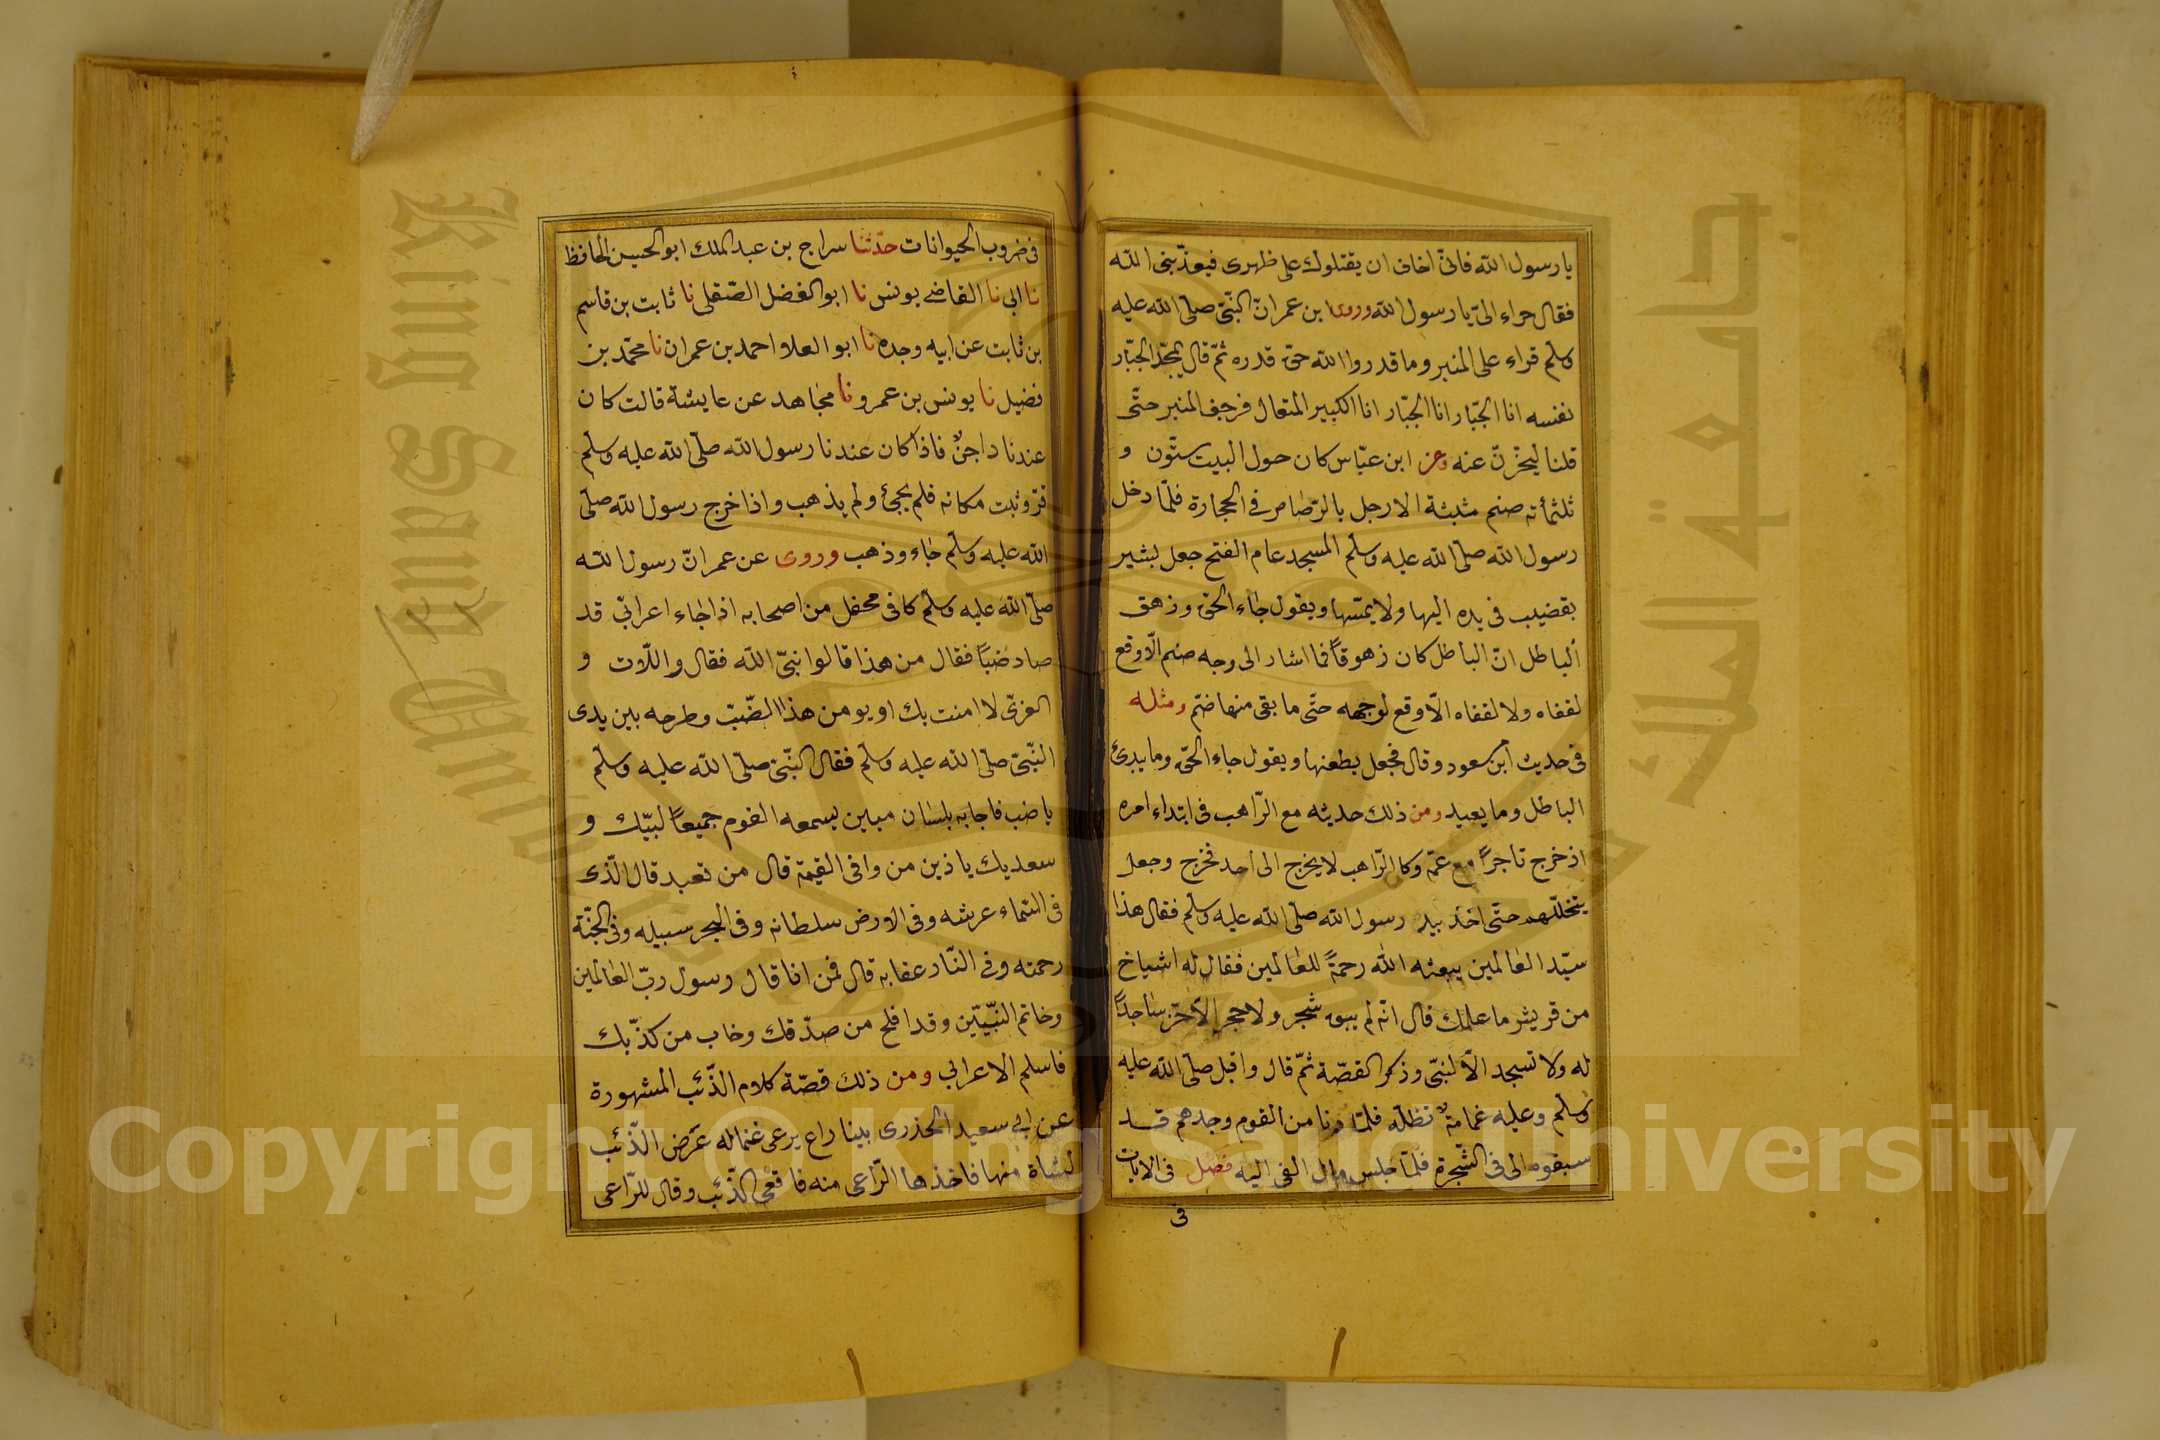 يا رسول الله فانّى اخاف ان يقتلوك على ظهرى فيعذّبنى الله
فقال حراء الىّ يا رسول الله وروى ابن عمر انّ النّبىّ صلّى الله عليه
وسلّم قراء على المنبر وما قدروا الله حقّ قدره ثمّ قال يمجّد الجبّار
نفسه انا الجبّار انا الجبّار انا الكبير المتعال فرجف المنبر حتّى
قلنا ليخرّنّ عنه وعن ابن عبّاس كان حول البيت ستّون و
ثلثمأته صنم مثبتة الارجل بالرّصاص فى الحجارة فلمّا دخل
رسول الله صلّى الله عليه وسلّم المسجد عام الفتح جعل يشير
بقضيب فى يده اليها ولا يمسّها ويقول جاء الحق وزهق
ألباطل انّ الباطل كان زهوقاً فما اشار الى وجه صنم الّا وقع
لقفاه ولا لقفاه الّا وقع لوجهه حتّى ما بقى منها صنم ومثله
فى حديث ابن مسعود وقال فجعل يطعنها ويقول جاء الحقّ وما يبدئ
الباطل وما يعيد ومن ذلك حديثه مع الرّاهب فى ابتداء امره
اذ خرج تاجراً مع عمّه وكا الرّاهب لا يخرج الى احد فخرج وجعل
يتخلّلهم حتّى اخذ بيد رسول الله صلّى الله عليه وسلّم فقال هذا
سيّد العالمين يبعثه الله رحمةً للعالمين فقال له اشياخ
من قريش ما علمك قال انّه لم يبق شجر ولا حجر الّا خرّ ساجداً
له ولا تسجد الّا لنبّى وذكر القصّة ثمّ قال واقبل صلّى الله عليه
وسلّم وعليه غمامةٌ تظلّه فلمّا دنا من القوم وجدهم قد
سبقوه الى فئ الشّجرة فلمّا جلس مال الفئ اليه فصل فى الايات
فى
فى ضروب الحيوانات حدّثنا سراج بن عبد الملك ابو الحسين الحافظ
نا ابى نا القاضى يونس نا ابو الفضل الصّقلى نا ثابت بن قاسم
بن ثابت عن ابيه وجده نا ابو العلا احمد بن عمران نا محمّد بن
فضيل نا يونس بن عمرو نا مجاهد عن عايشة قالت كان
عندنا داجنٌ فاذا كان عندنا رسول الله صلّى الله عليه وسلّم
قرّ وثبت مكانه فلم يجئ ولم يذهب واذا خرج رسول الله صلّى
الله عليه وسلّم جاء وذهب وروى عن عمر انّ رسول الله
صلّى الله عليه وسلّم كا فى محفل من اصحابه اذا جاء اعرابّى قد
صاد ضبّاً فقال من هذا قالوا نبىّ الله فقال واللّات و
العزّى لا امنت بك او يومن هذا الضّبّ وطرحه بين يدى
النّبىّ صلّى الله عليه وسلّم فقال النّبىّ صلّى الله عليه وسلّم
يا ضب فاجابه بلسان مبين يسمعه القوم جميعاً لبّيك و
سعديك يا زين من وافى القيمة قال من تعبد قال الّذى
فى السّماء عرشه وفى الارض سلطانه وفى البحر سبيله وفى الجنّة
رحمته وفى النّار عقابه قال فمن انا قال رسول ربّ العالمين
وخاتم النّبيّين وقد افلح من صدّقك وخاب من كذّبك
فاسلم الاعرابى ومن ذلك قصّة كلام الذّئب المشهورة
عن ابى سعيد الخدرى بينا راع يرعى غنما له عرض الذّئب
لشاة منها فاخذها الرّاعى منه فاقعى الذّئب وقال للرّاعى
جامعة الملك سعود
King Saud University
Copyright © King Saud University